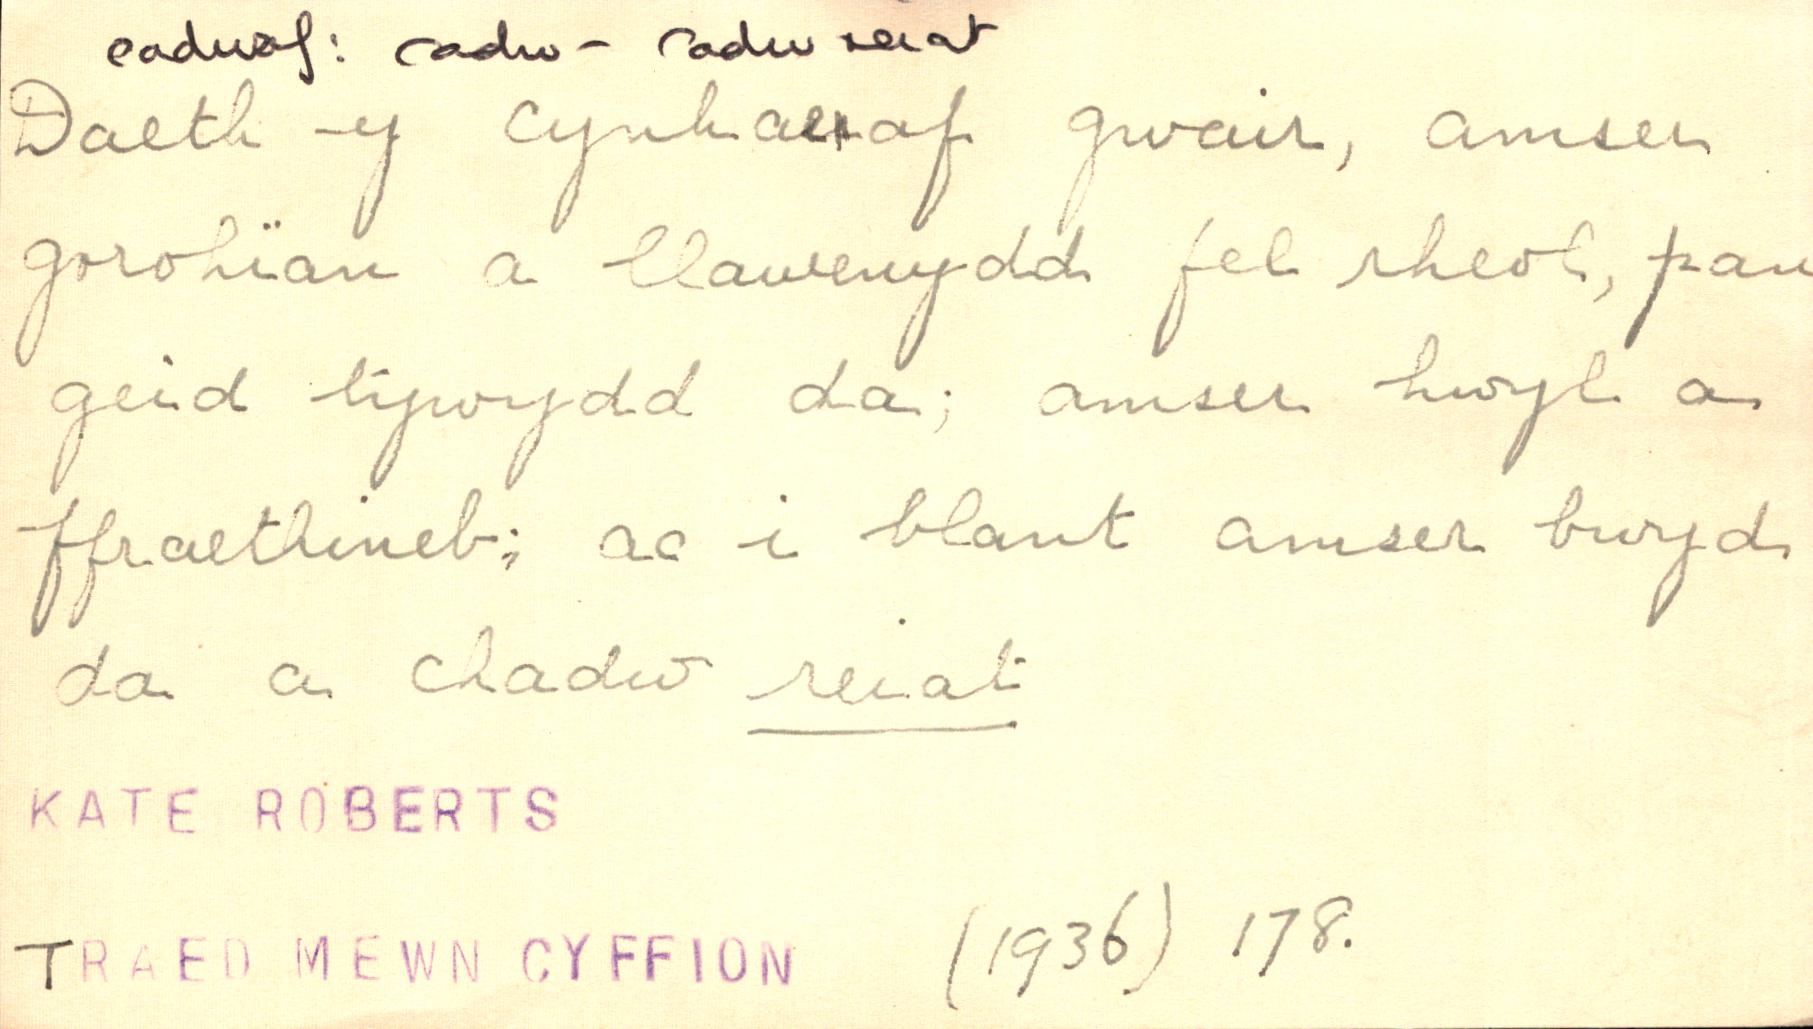 cadwaf: cadw – cadw reiat
Daeth y cynhaeaf gwair, amser
gorohïan a llawenydd fel rheol, pan
geid tywydd da; amser hwyl a
ffraethineb; ac i blant amser bwyd
da a chadw reiat
KATE ROBERTS
TRAED MEWN CYFFION (1936) 178.